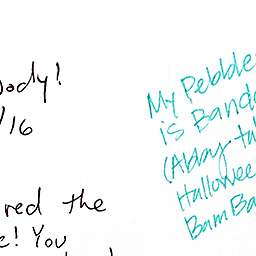 ody!
/16
red the
e! You
My Pebble
is Band
(Abby ta
Hallowee
Bam Ba